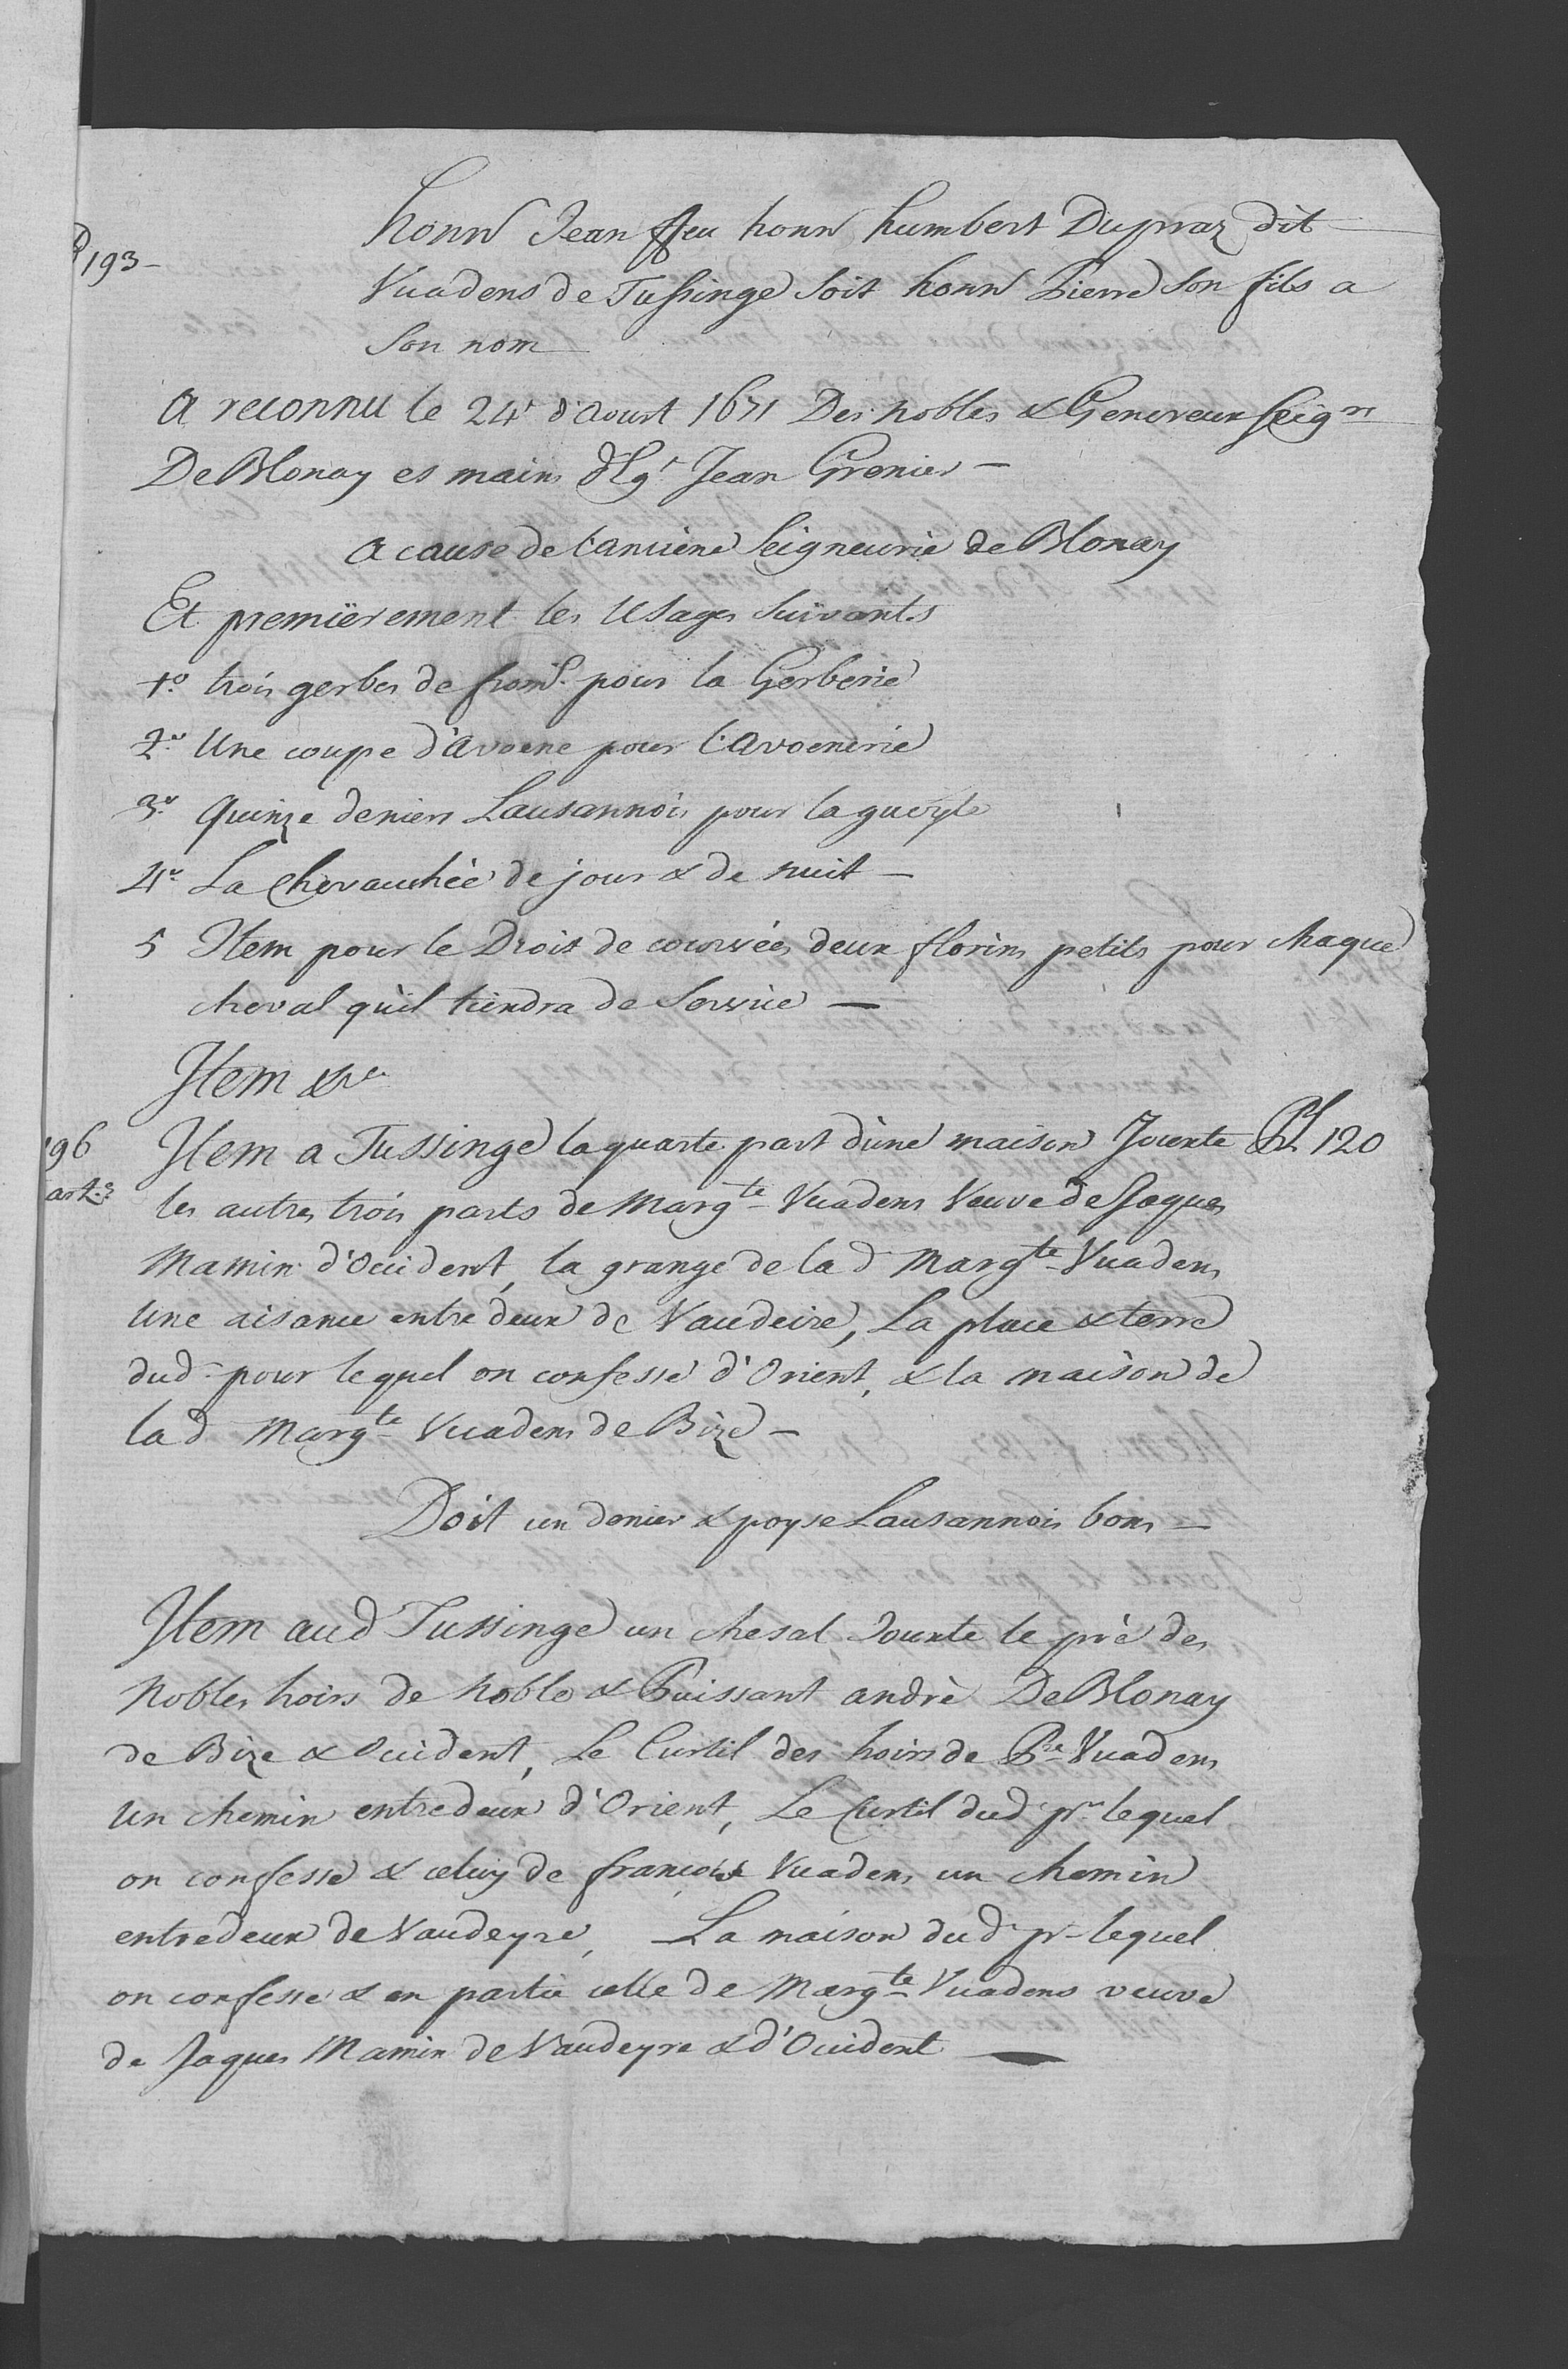 honn Jean ffeu honn humbert Dupraz dit
193 -
Vuadens de Tussinge soit honn Pierre son fils a
Son nom
A reconnu le 24e d'aoust 1671 Des nobles & Genereux Seigrs
De Blonay es mains d'Egr Jean Grenier -
a cause de l'anciene Seigneurie de Blonay
Et premièrement les Usages Suivants
1o. trois gerbes de fromt. pour la Gerberie
2o. Une coupe d'Avoene pour l'avoenerie
3o. Quinze deniers Lausannois pour la gueyte
4o. La Chevauchée de jour & de nuit -
5 Item pour le Droit de courvées deux florins petits pour chaque
cheval qu'il tiendra de Service -
Item &ra
96 Item a Tussinge la quarte part d'une maison Jouxte 120
art. 2 les autres trois parts de Margte Vuadens Veuve de Jaques
Mamin d'Occident, la grange de lad Margte Vuadens
Une aisance entre deux de Vaudeire, La place & terre
dud pour lequel on confesse d'Orient, & la maison de
lad Margte Vuadens de Bize -
Doit un denier & poyse Lausannois bons -
Item aud Tussinge un chesal Jouxte le pré des
Nobles hoirs de Noble & Puissant andrè De Blonay
de Bize & Occident, Le Curtil des hoirs de Pre Vuadens
un chemin entredeux d'Orient, Le Curtil dud pr lequel
on confesse & celuy de françois Vuadens un chemin
entredeux de Vaudeyre, La maison dud pr lequel
on confesse & en partie celle de Margte Vuadens veuve
de Jaques Mamin de Vaudeyre & d'Occident